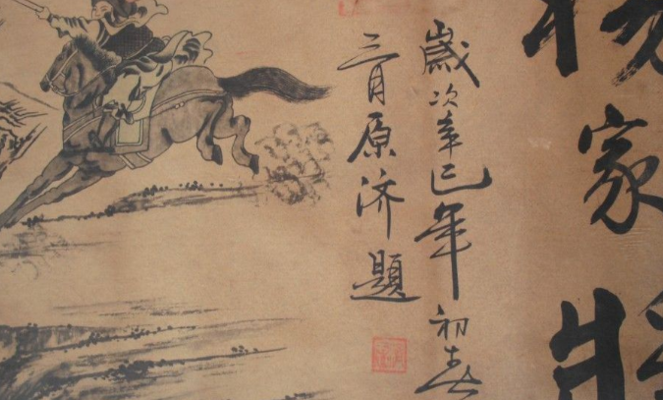 杨家將
歲次辛巳年初春
三月原济題